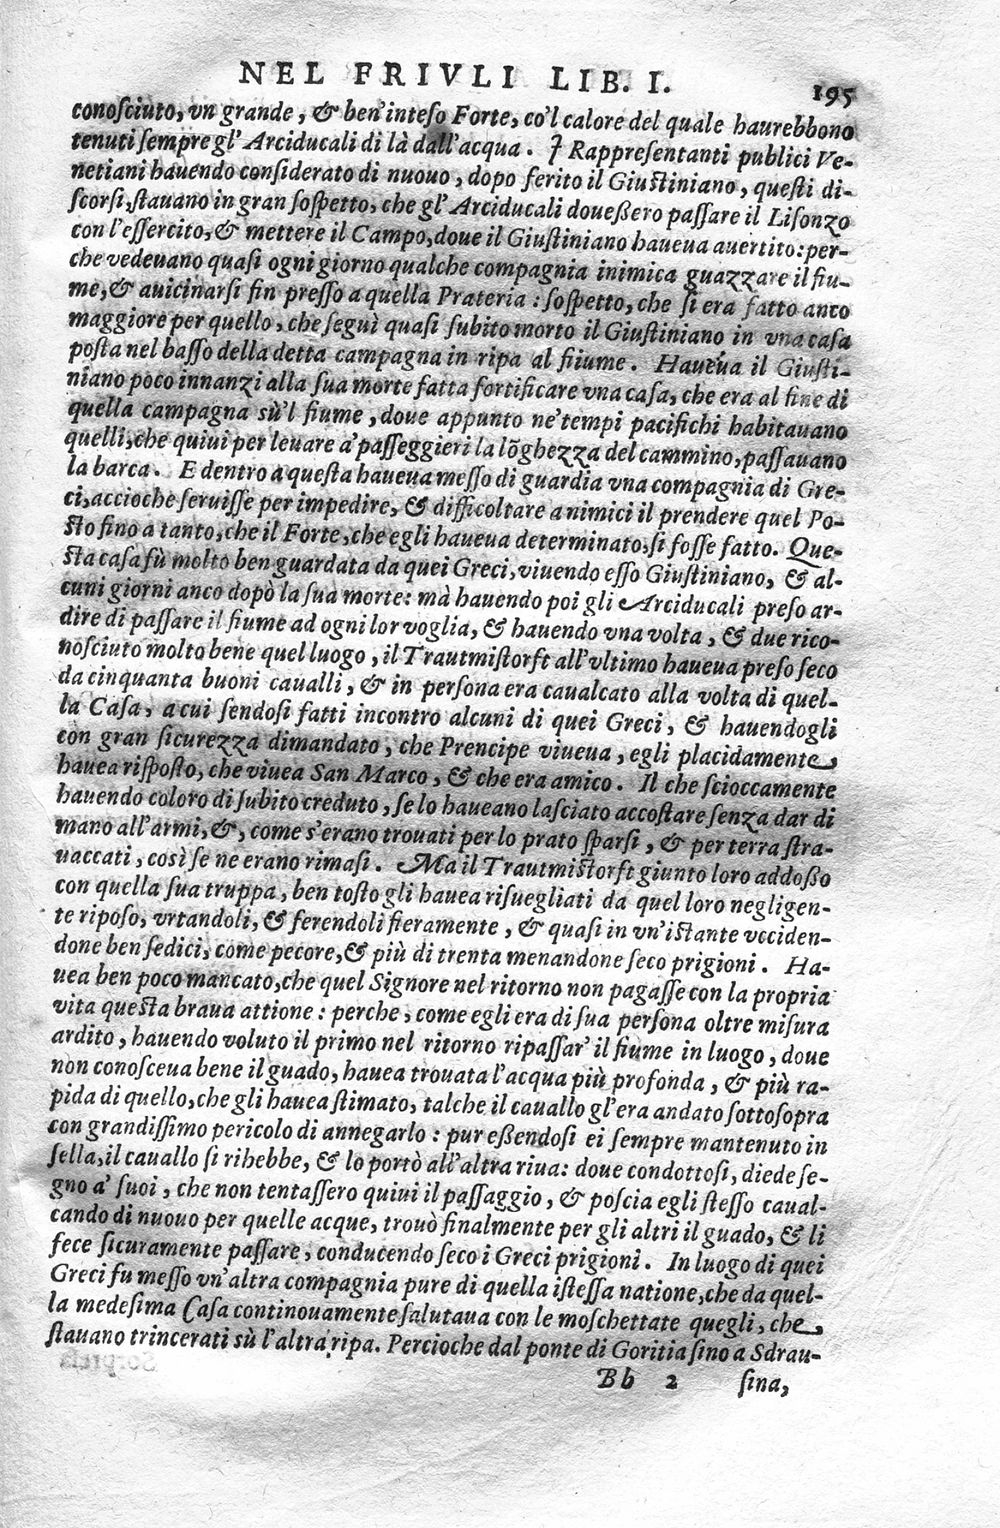 NEL FRIVLI LIB. I. 195
conoſciuto, vn grande, & ben'inteſo Forte, co'l calore del quale haurebbono
tenuti ſempre gl' Arciducali di là dall'acqua. I Rappreſentanti publici Ve-
netiani hauendo conſiderato di nuouo, dopo ferito il Giuſtiniano, queſti di-
ſcorſi, ſtauano in gran ſoſpetto, che gl' Arciducali doueßero paſſare il Liſonzo
con l'eſſercito, & mettere il Campo, doue il Giuſtiniano haueua auertito: per-
che vedeuano quaſi ogni giorno qualche compagnia inimica guazzare il fiu-
me, & auicinarſi fin preſſo a quella Prateria: ſoſpetto, che ſi era fatto anco
maggiore per quello, che ſeguì quaſi ſubito morto il Giuſtiniano in vna caſa
poſta nel baſſo della detta campagna in ripa al fiiume. Haueua il Giuſti-
niano poco innanzi alla ſua morte fatta fortificare vna caſa, che era al fine di
quella campagna sù'l fiume, doue appunto ne'tempi pacifichi habitauano
quelli, che quiui per leuare a' paſſeggieri la lõghezza del cammino, paſſauano
la barca. E dentro a queſta haueua meſſo di guardia vna compagnia di Gre-
ci, accioche ſeruiſſe per impedire, & difficoltare a nimici il prendere quel Po-
ſto fino a tanto, che il Forte, che egli haueua determinato, ſi foſſe fatto. Que-
ſta caſa fù molto ben guardata da quei Greci, viuendo eſſo Giuſtiniano, & al-
cuni giorni anco dopò la ſua morte: mà hauendo poi gli Arciducali preſo ar-
dire di paſſare il fiume ad ogni lor voglia, & hauendo vna volta, & due rico-
noſciuto molto bene quel luogo, il Trautmiſtorft all'vltimo haueua preſo ſeco
da cinquanta buoni caualli, & in perſona era caualcato alla volta di quel-
la Caſa, a cui ſendoſi fatti incontro alcuni di quei Greci, & hauendogli
con gran ſicurezza dimandato, che Prencipe viueua, egli placidamente
hauea riſpoſto, che viuea San Marco, & che era amico. Il che ſcioccamente
hauendo coloro di ſubito creduto, ſe lo haueano laſciato accoſtare ſenza dar di
mano all'armi, &, come s'erano trouati per lo prato ſparſi, & per terra ſtra-
uaccati, così ſe ne erano rimaſi. Ma il Trautmiſtorft giunto loro addoßo
con quella ſua truppa, ben toſto gli hauea riſuegliati da quel loro negligen-
te ripoſo, vrtandoli, & ferendoli fieramente, & quaſi in vn'iſtante vcciden-
done ben ſedici, come pecore, & più di trenta menandone ſeco prigioni. Ha-
uea ben poco mancato, che quel Signore nel ritorno non pagaſſe con la propria
vita queſta braua attione: perche, come egli era di ſua perſona oltre miſura
ardito, hauendo voluto il primo nel ritorno ripaſſar' il fiume in luogo, doue
non conoſceua bene il guado, hauea trouata l'acqua più profonda, & più ra-
pida di quello, che gli hauea ſtimato, talche il cauallo gl'era andato ſottoſopra
con grandiſſimo pericolo di annegarlo: pur eßendoſi ei ſempre mantenuto in
ſella, il cauallo ſi rihebbe, & lo portò all'altra riua: doue condottoſi, diede ſe-
gno a' ſuoi, che non tentaſſero quiui il paſſaggio, & poſcia egli ſteſſo caual-
cando di nuouo per quelle acque, trouò finalmente per gli altri il guado, & li
fece ſicuramente paſſare, conducendo ſeco i Greci prigioni. In luogo di quei
Greci fu meſſo vn'altra compagnia pure di quella iſteſſa natione, che da quel-
la medeſima Caſa continouamente ſalutaua con le moſchettate quegli, che
ſtauano trincerati sù l'altra ripa. Percioche dal ponte di Goritia ſino a Sdrau-
Bb 2 ſina,